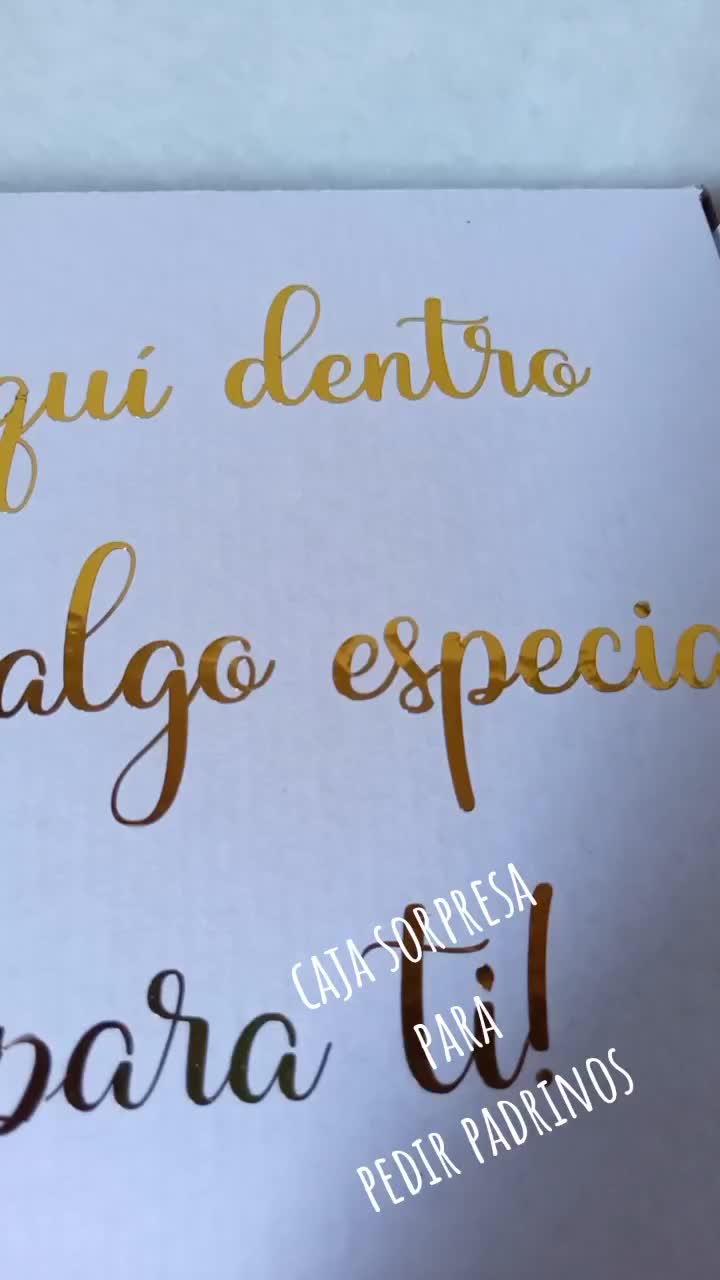 quí dentro
algo especia
para ti!
CAJA SORPRESA
PARA
PEDIR PADRINOS